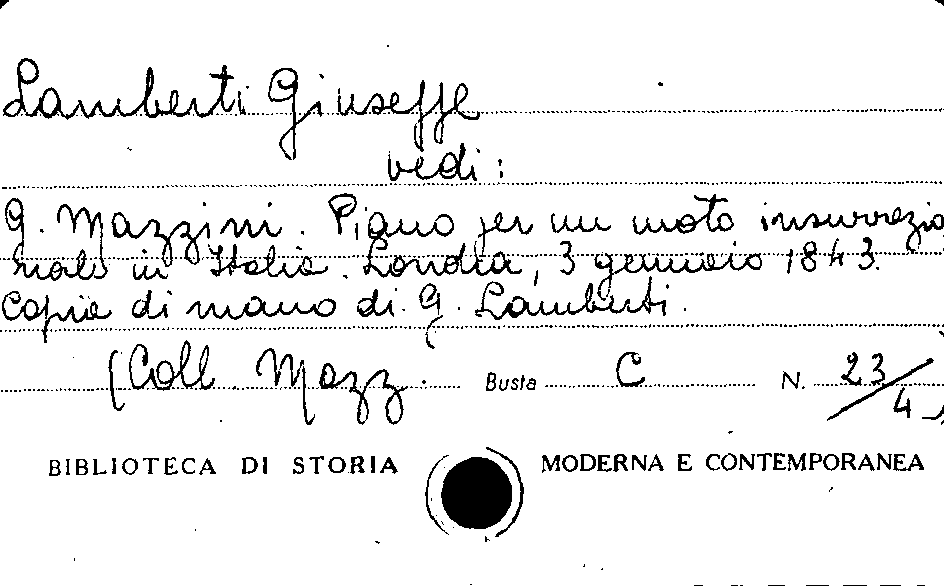 Lamberti Giuseppe
vedi:
G. Mazzini. Piano per un moto insurrezio
nale in Italia. Londra, 3 gennaio 1843.
Copia di mano di G. Lamberti.
(Coll. Mazz. Busta C N. 23/4
BIBLIOTECA DI STORIA MODERNA E CONTEMPORANEA